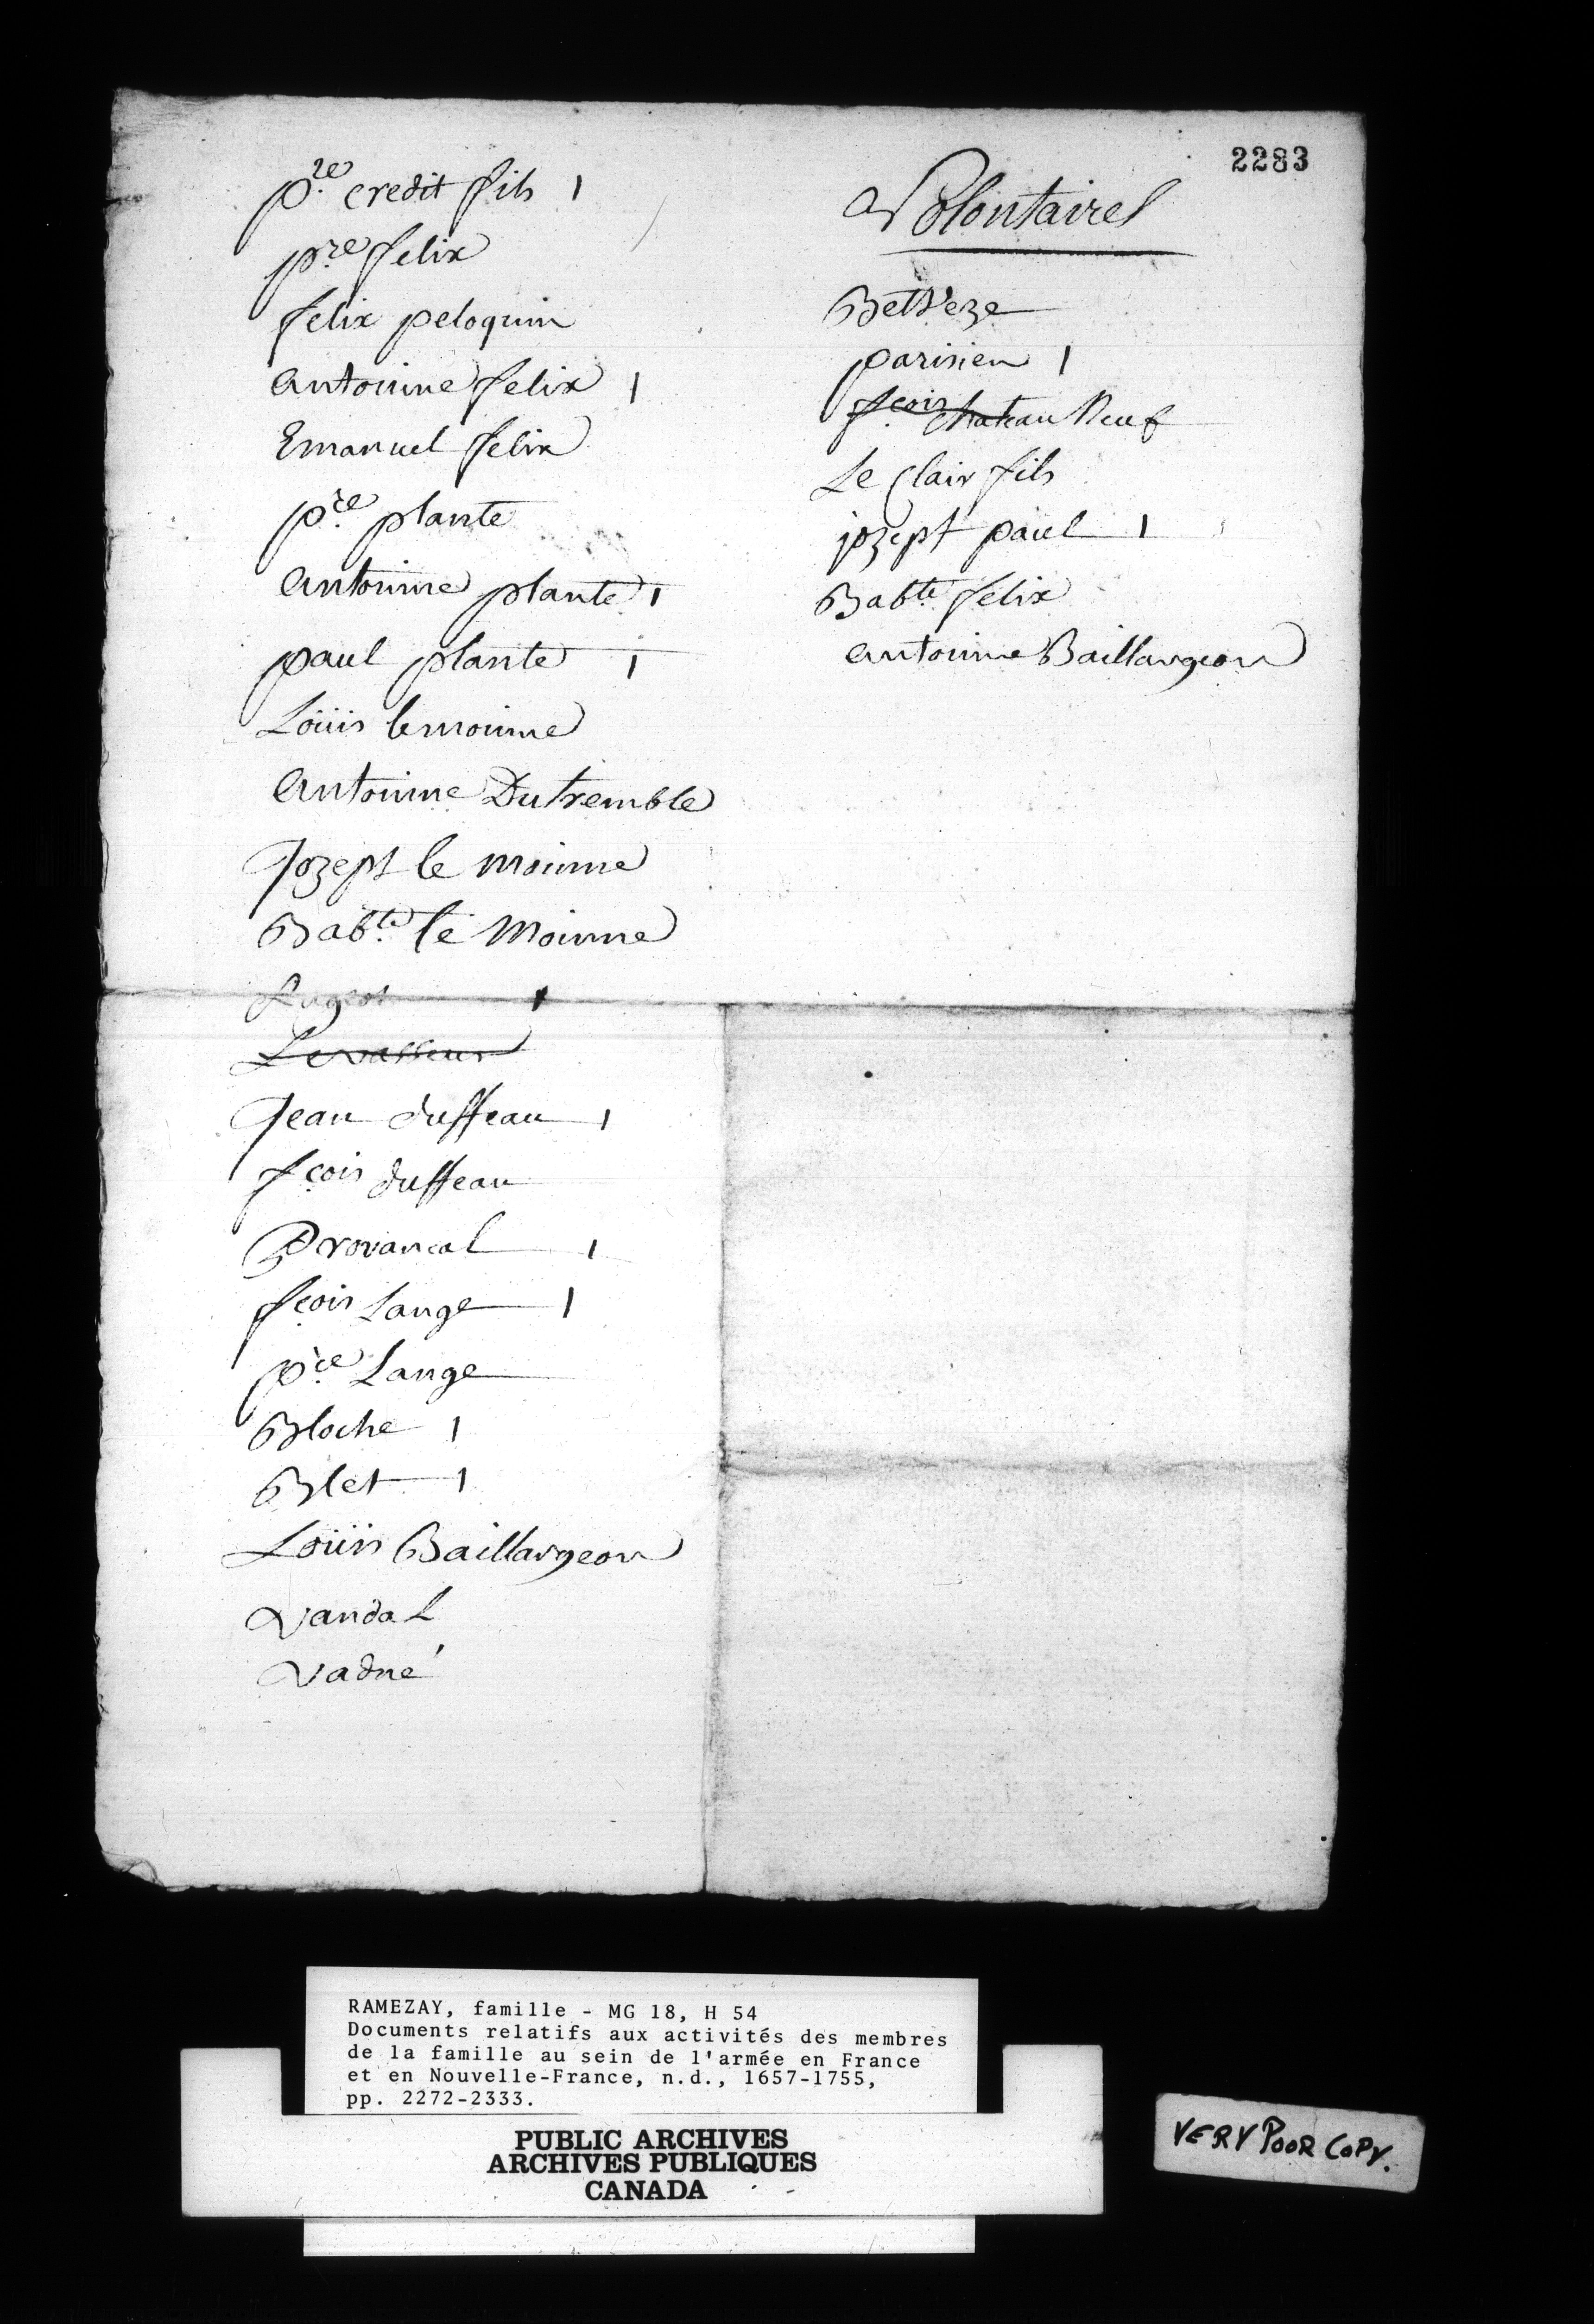 2283
pre credit fils 1
pre felix
felix peloquin
antoinne felix 1
Emanuel felix
pre plante
antoinne plante 1
paul plante 1
Loüis lemoinne
antoinne Dutremble
Jozept le moinne
Babte le Moinne
Lugeot 1
Levasseur
Jean duffeau 1
fçois duffeau
Provancal 1
fçois Lange 1
pre Lange
Bloche 1
Blet 1
Loüis Baillargeon
Vandal
Vadné
Volontaires
parisien 1
fçois chateau Neuf
Le Clair fils
jozept paul 1
Babte felix
antoinne Baillargeon
RAMEZAY, famille - MG 18, H 54
Documents relatifs aux activités des membres
de la famille au sein de l'armée en France
et en Nouvelle-France, n.d., 1657-1755,
pp. 2272-2333.
PUBLIC ARCHIVES
ARCHIVES PUBLIQUES
CANADA
VERY POOR COPY.